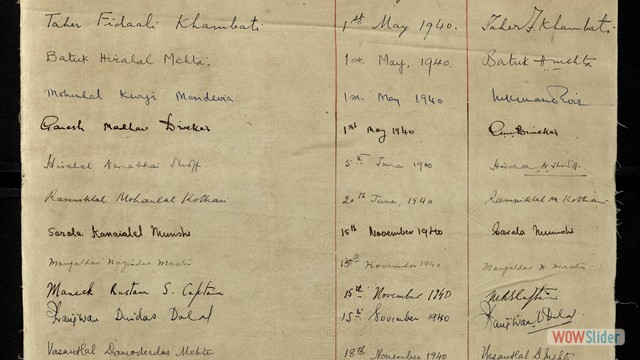 Taher Fidaali Khambati 1st May 1940. Taher F. Khambati.
Batuk Hiralal Mehta. 1st. May, 1940. Batuk H. Mehta
Mohunlal Mandevia 1st. May 1940
Ganesh Madhav Divekar 1st May 1940 Divekar
Hiralal Nanabhai Shroff 5th June 1940 Hiralal N. Shroff.
Ramniklal Mohanlal Kothari 20th June, 1940 Ramniklal M. Kothari
Sarala Kanaialal Munshi 15th November 1940 Sarala Munshi
Mangaldas Nagindas Master 15th November 1940 Mangaldas N. Master
Maneck Rustam S. Captain 15th November 1940
Dwarkadas Dalal 15th November 1940 Dalal
Vasantlal Damoderdas Mehta 18th November 1940 Vasantlal D. Mehta
WOWSlider